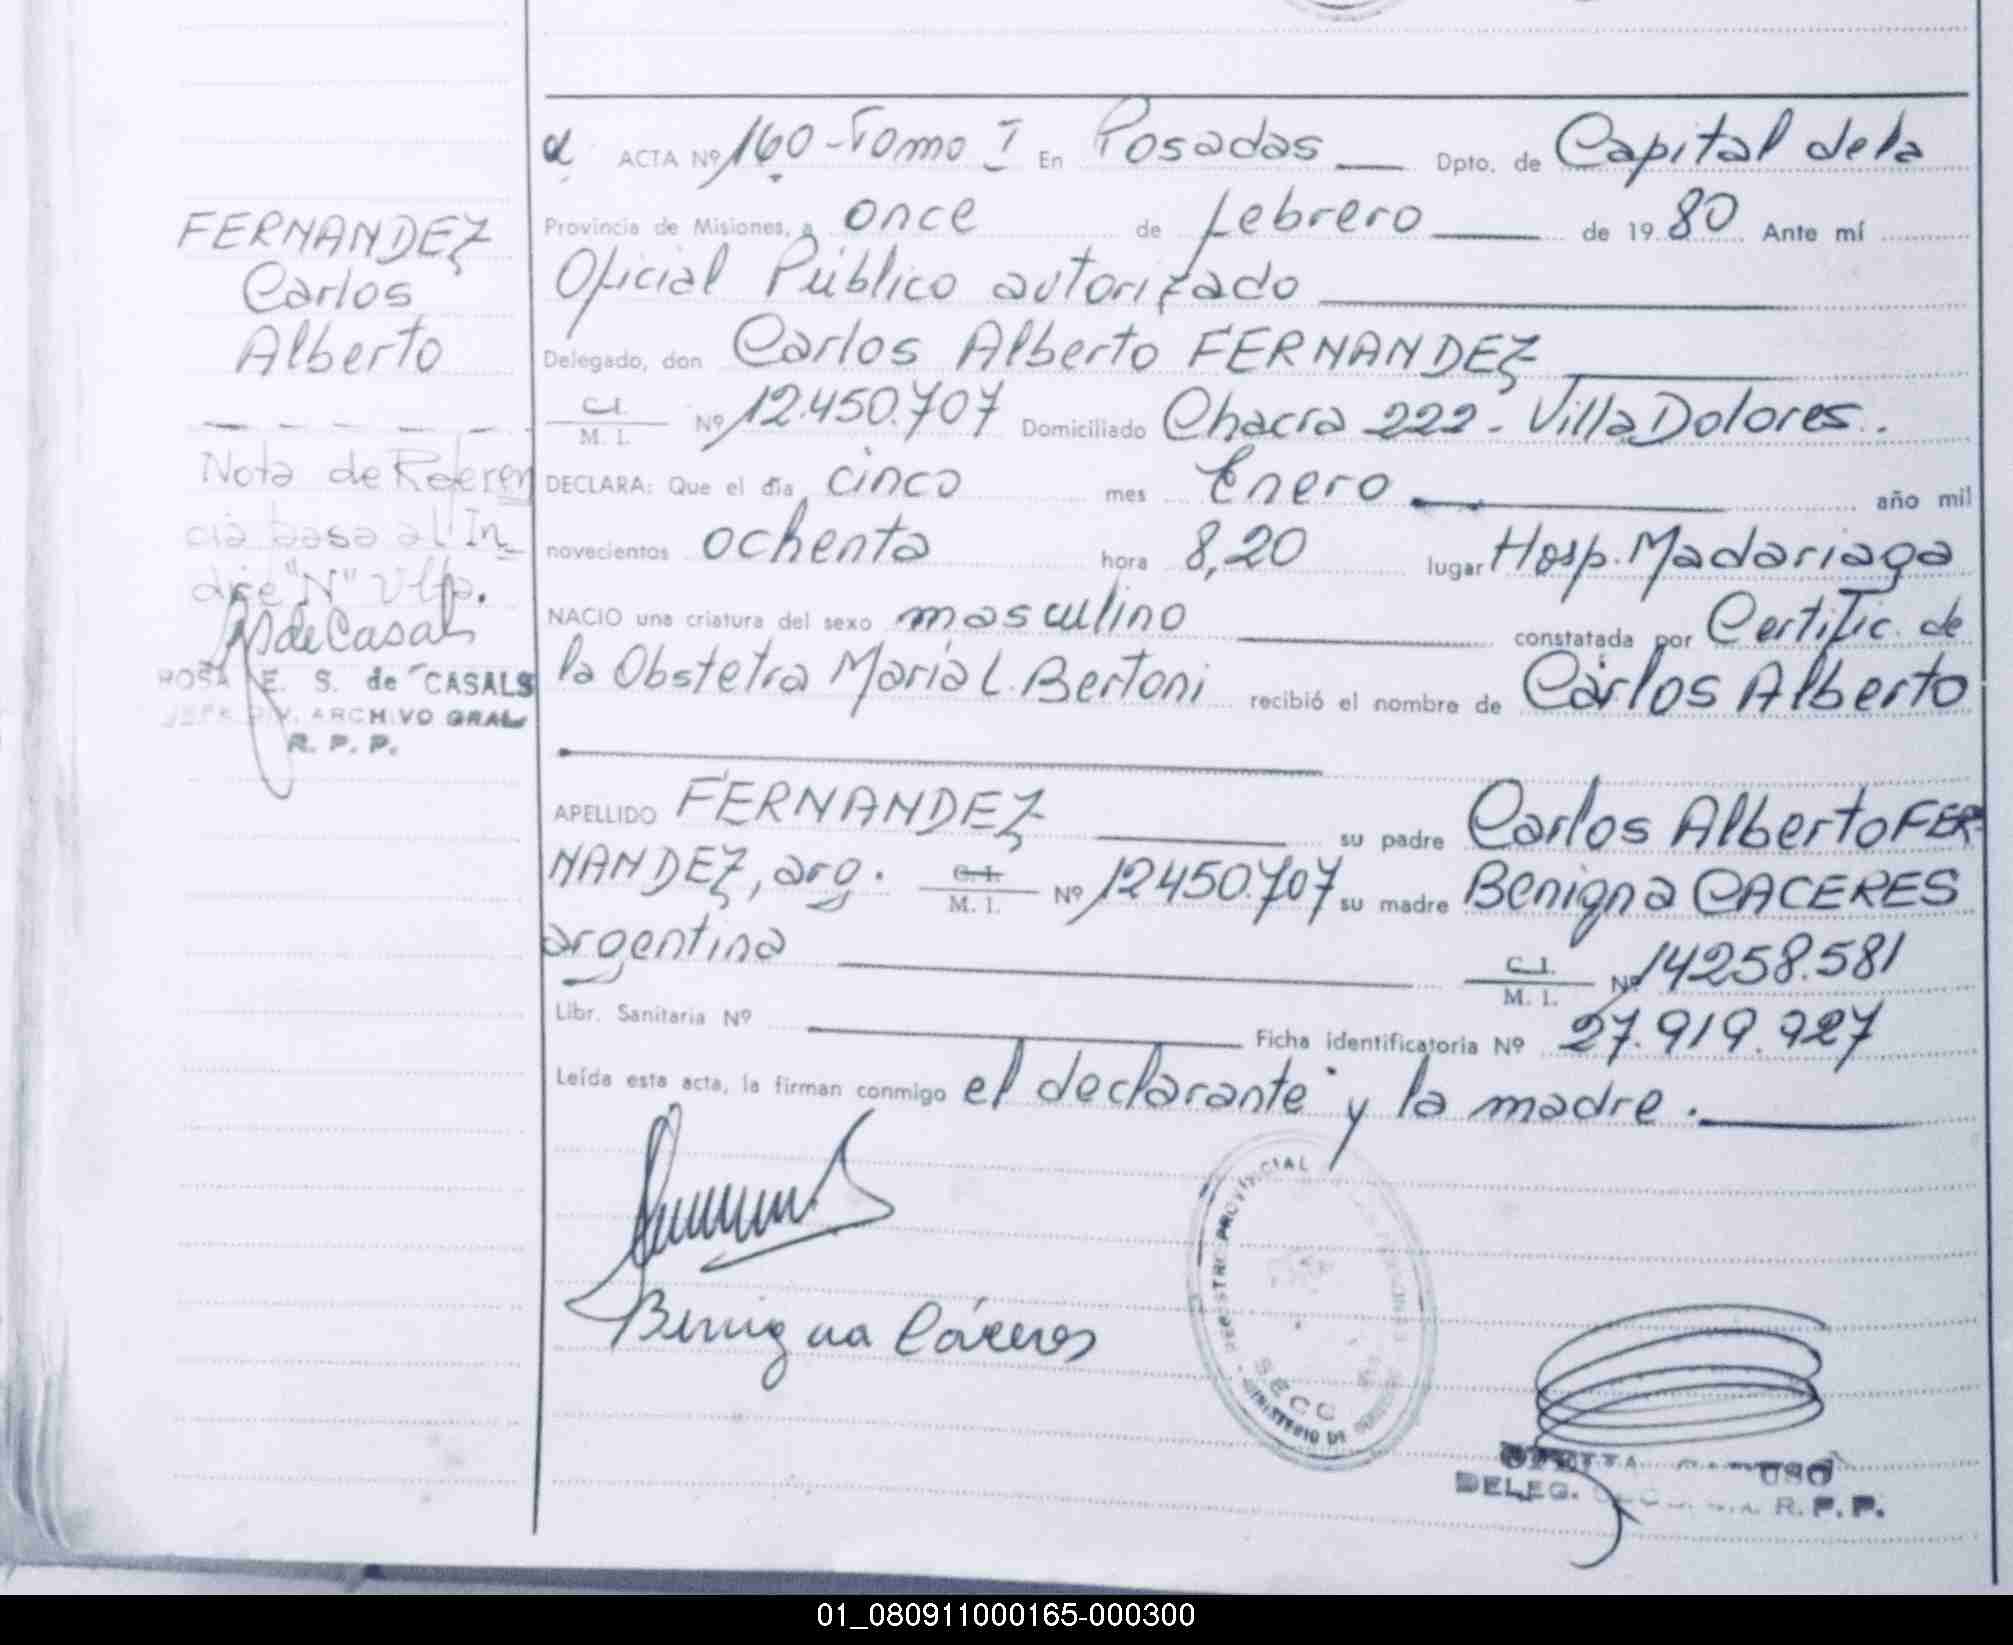 FERNANDEZ
Carlos
Alberto
Nota de Referen
cia pasa al In
dice "N" Ulfo.
ROSA E. S. de CASALS
JEFE DIV. ARCHIVO GRAL
R. P. P.
ACTA Nº 160-Tomo I En Posadas Dpto. de Capital de la
Provincia de Misiones, a once de febrero de 1980 Ante mí
Oficial Público autorizado
Delegado, don Carlos Alberto FERNANDEZ
C.I. / M. I. Nº 12.450.707 Domiciliado Chacra 222 - Villa Dolores.
DECLARA: Que el día cinco mes Enero año mil
novecientos ochenta hora 8,20 lugar Hosp. Madariaga
NACIO una criatura del sexo masculino constatada por Certific. de
la Obstetra María L. Bertoni recibió el nombre de Carlos Alberto
APELLIDO FERNANDEZ su padre Carlos Alberto FER-
NANDEZ, arg. C.I. / M. I. Nº 12450.707 su madre Benigna CACERES
argentina C.I. / M. I. Nº 14258.581
Libr. Sanitaria Nº Ficha identificatoria Nº 27.919.927
Leída esta acta, la firman conmigo el declarante y la madre.
Benigna Cáceres
REGISTRO PROVINCIAL
SECC
MINISTERIO DE
DELEG. R. P. P.
01_080911000165-000300